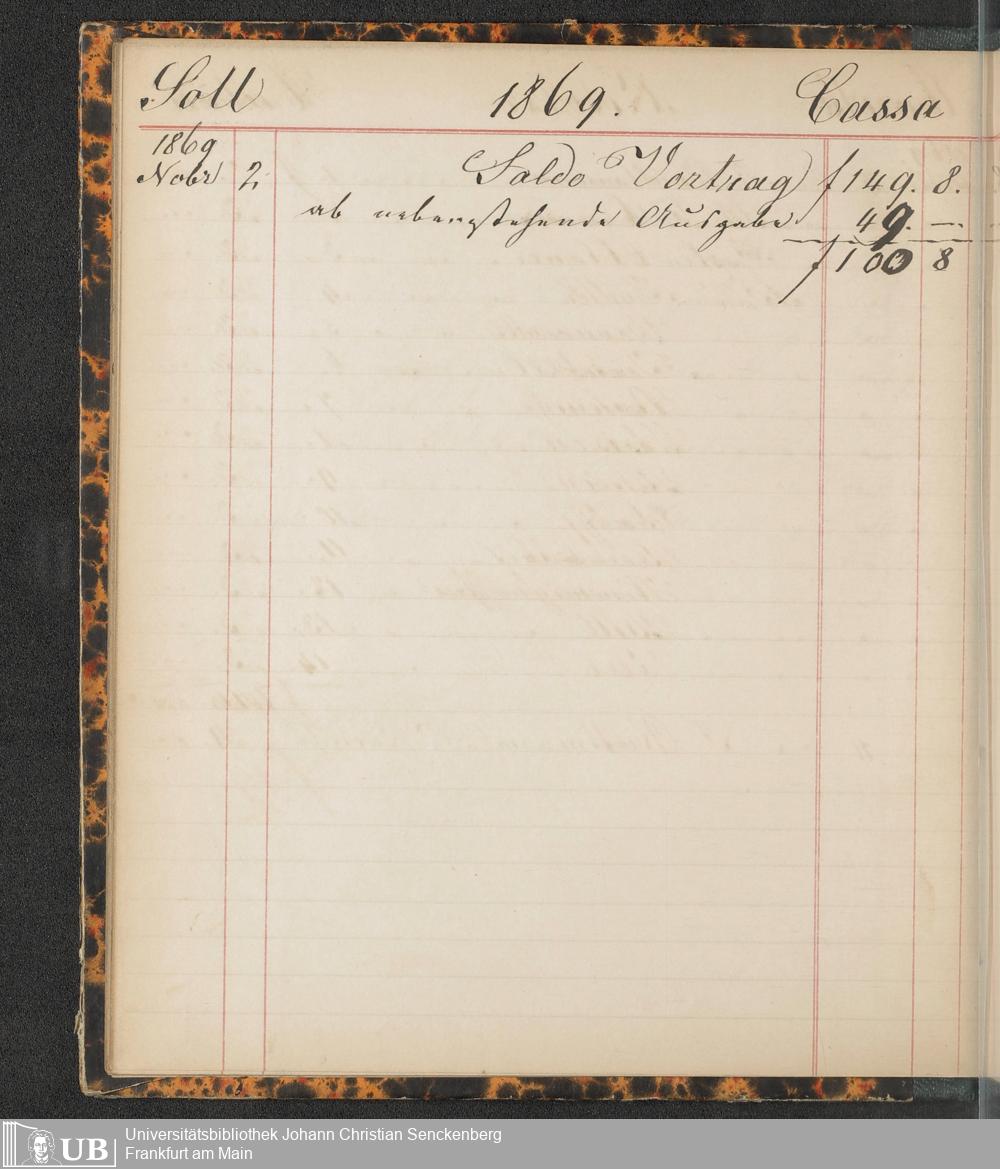 Soll 1869. Cassa
1869
Nobr 2. Saldo Vortrag f 149. 8.
ab nebenstehende Ausgabe 49. —.
f 100 8
UB Universitätsbibliothek Johann Christian Senckenberg
Frankfurt am Main